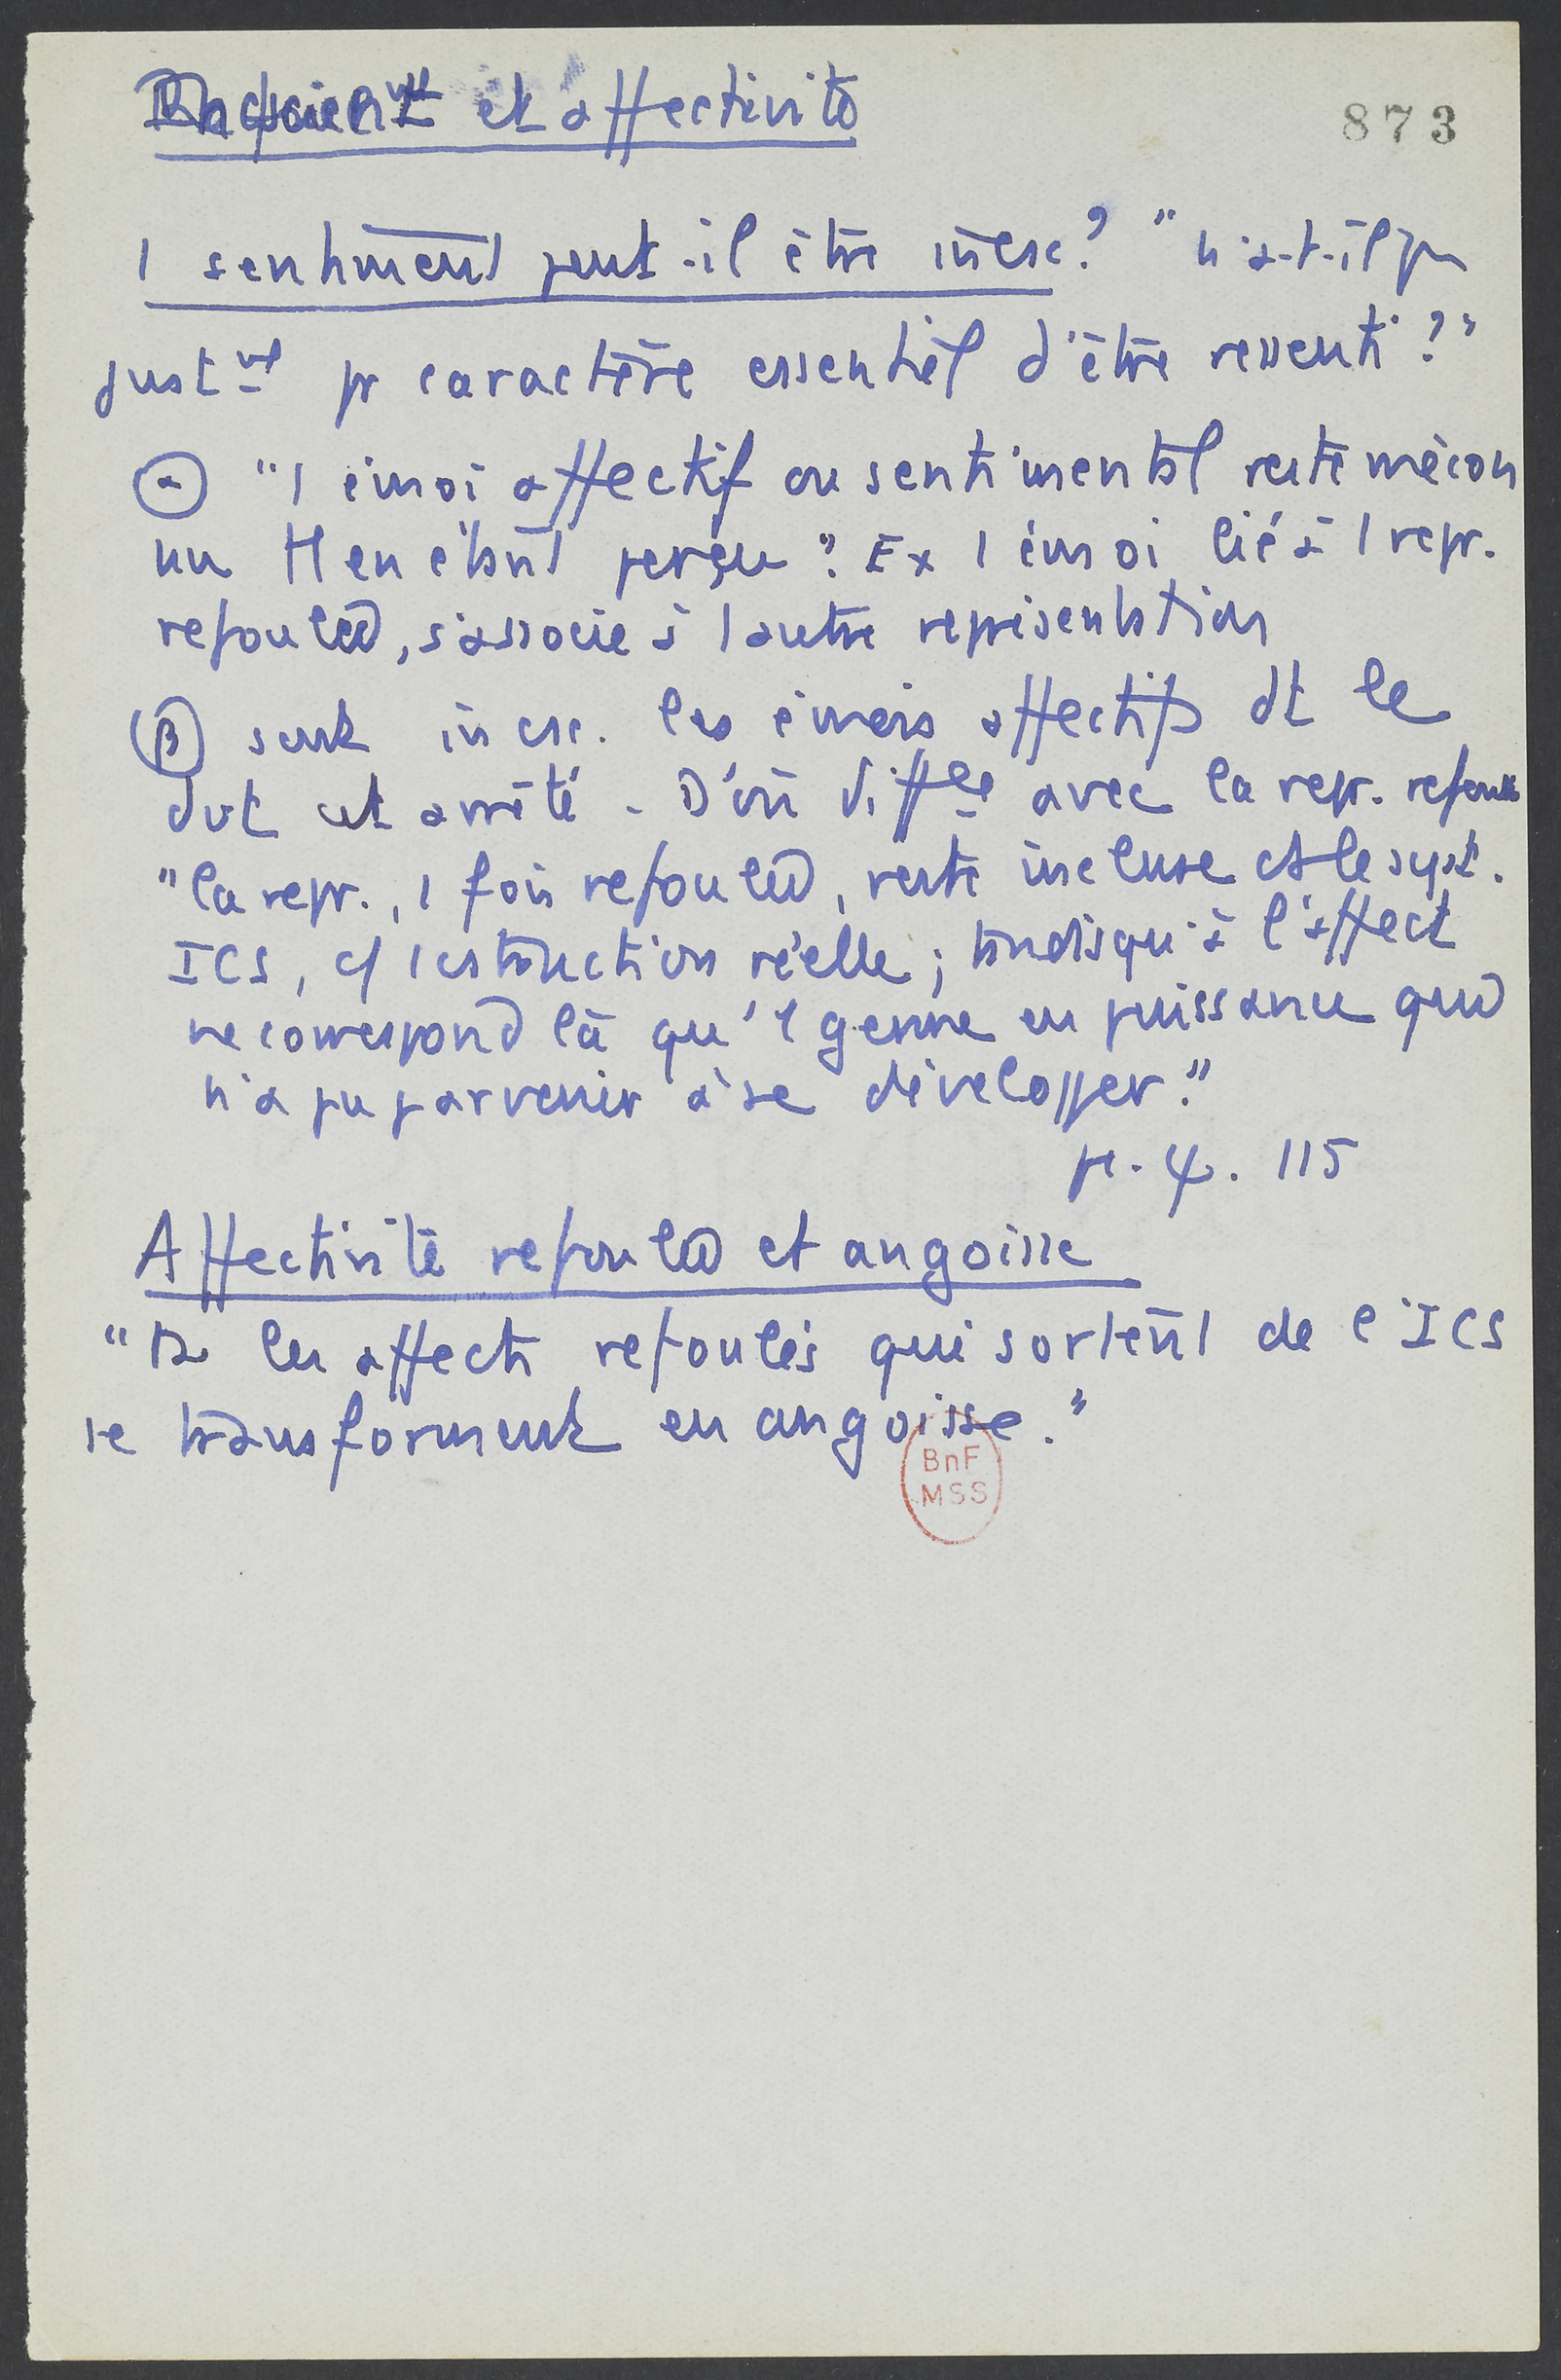 Inconscient et affectivité
873
1 sentiment peut-il être incsc? " n'a-t-il pas
justmt pr caractère essentiel d'être ressenti ?"
α "1 émoi affectif ou sentimental reste mécon
nu tt en étant perçu". Ex 1 émoi lié à 1 repr.
refoulée, s'associe à 1 autre représentation
β sont incsc. les émois affectifs dt le
dvt est arrêté. D'où diffce avec la repr. refoulée
"la repr., 1 fois refoulée, reste incluse ds le syst.
ICS, c/ 1 cstruction réelle ; tandis qu'à l'affect
ne correspond là qu'1 germe en puissance qui
n'a pu parvenir à se développer."
115
Affectivité refoulée et angoisse
les affects refoulés qui sortent de l'ICS
se transforment en angoisse."
BnF
MSS